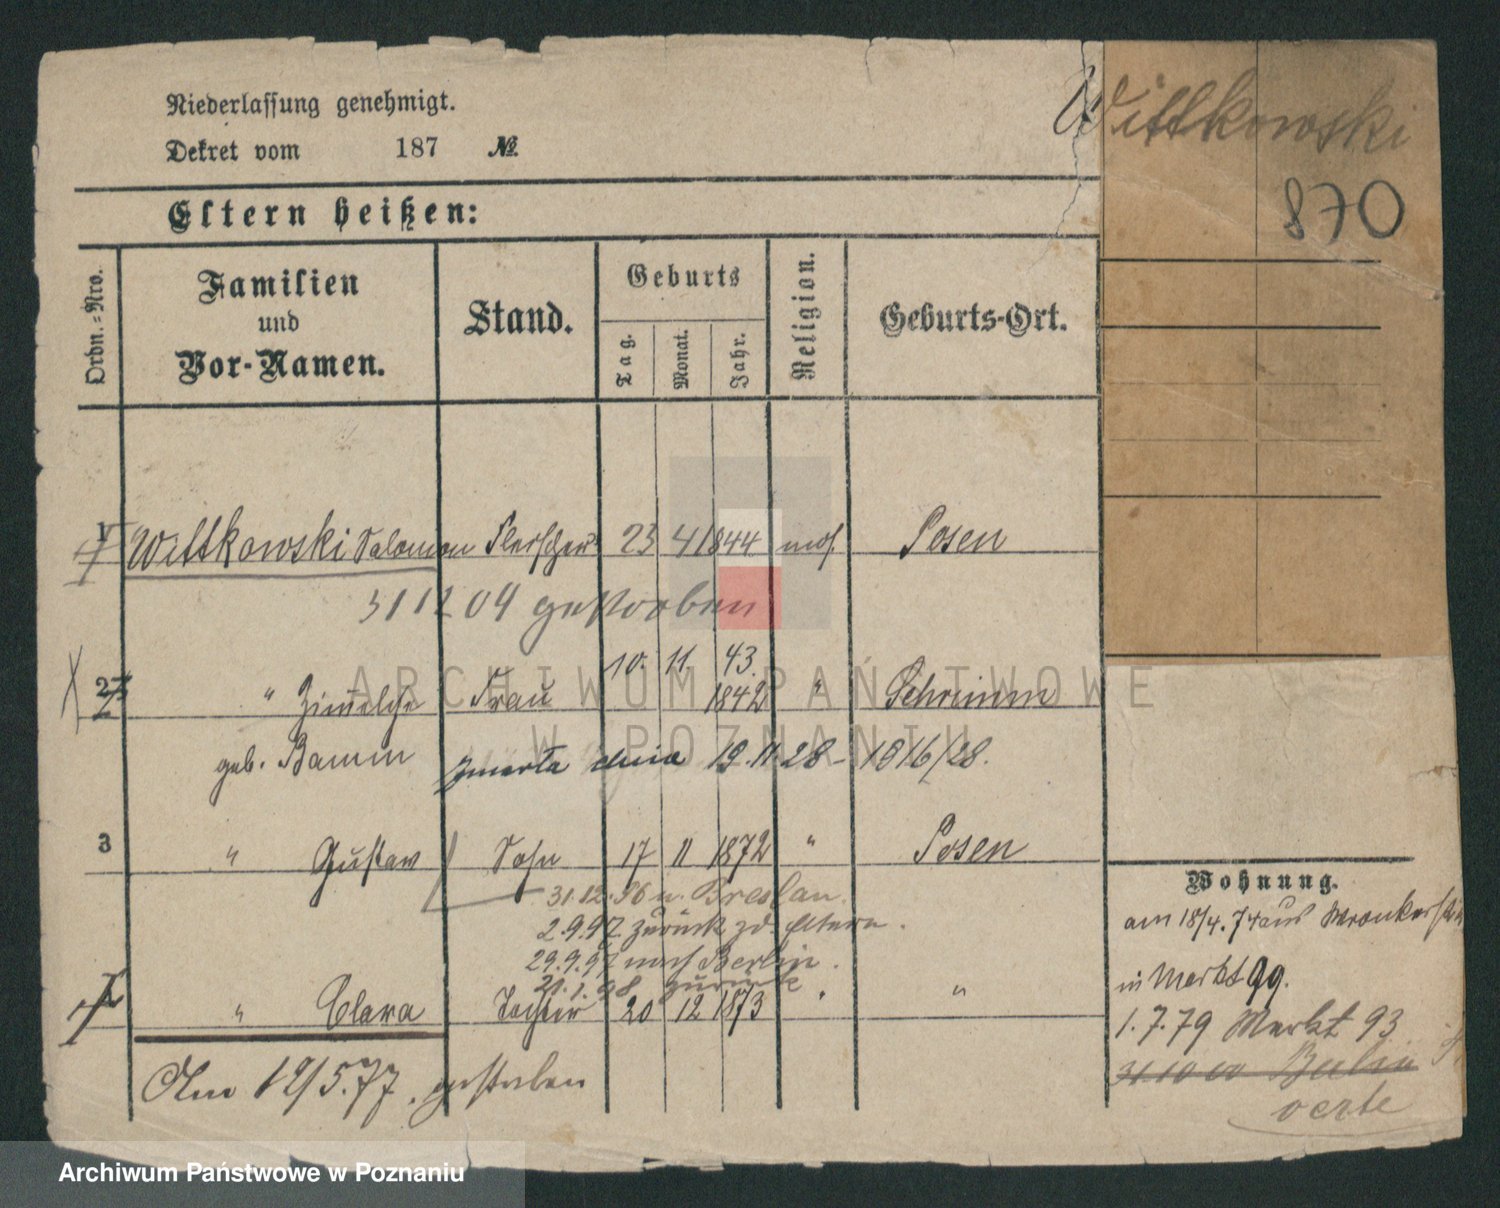 Niederlassung genehmigt.
Dekret vom 187 №
Wittkowski
870
Eltern heißen:
Ordn.-Nro.
Familien und Vor-Namen.
Stand.
Geburts
Tag.
Monat.
Jahr.
Religion.
Geburts-Ort.
1 Wittkowski Salomon Fleischer 23 4 1844 mos. Posen
31 12 04 gestorben
10. 11 43.
2 " Frau 1842 " Schrimm
geb. Bamm zmarła dnia 19.11.28 - 1816/28.
3 " Gustav Sohn 17 11 1872 " Posen
31.12.96 n. Breslau.
2.9.97 zurück zd. Eltern.
29.9.97 nach Berlin.
21.1.98 zurück
" Clara Tochter 20 12 1873 " "
Am 12/5.77. gestorben
Wohnung.
am 18/4.74 aus Wronkerstr
in Markt 99.
1.7.79 Markt 93
31.10 00 Berlin
verte
ARCHIWUM PAŃSTWOWE
W POZNANIU
Archiwum Państwowe w Poznaniu